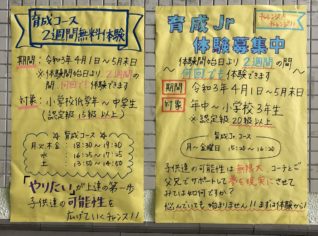 育成コース
2週間無料体験
期間：令和3年4月1日～5月末日
※体験開始日より2週間の間
何回でも体験できます
対象：小学校低学年～中学生
(認定級15級以上)
育成コース
月・火・木・金 18:30～19:30
土
日
「やりたい」が上達の第一歩
子供達の可能性を
広げていくチャンス!!
育成Jr
チャレンジ
体験募集中
※体験開始日より2週間の間
何回でも体験できます
期間 令和3年4月1日～5月末日
対象 年中～小学校3年生
(認定級20級以上)
育成Jr.コース
月～金曜日 15:30～16:30
子供達の可能性は無限大 コーチとご
父兄でサポートして夢を現実にさせて
みては如何ですか？
悩んでいても始まりません!!まずは体験から!